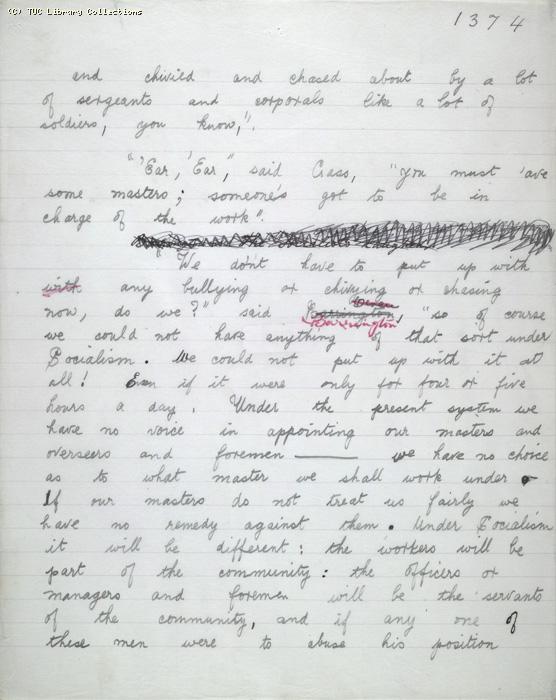 (C) TUC Library Collections
1374
and chivied and chased about by a lot
of sergeants and corporals like a lot of
soldiers, you know,".
"'Ear, 'Ear," said Crass, "you must 'ave
some masters; someone's got to be in
charge of the work".
"We don't have to put up with
with any bullying or chivying or chasing
now, do we?" said Barrington, "so of course
we could not have anything of that sort under
Socialism. We could not put up with it at
all! Even if it were only for four or five
hours a day. Under the present system we
have no voice in appointing our masters and
overseers and foremen — we have no choice
as to what master we shall work under.
If our masters do not treat us fairly we
have no remedy against them. Under Socialism
it will be different: the workers will be
part of the community: the officers or
managers and foremen will be the servants
of the community, and if any one of
these men were to abuse his position